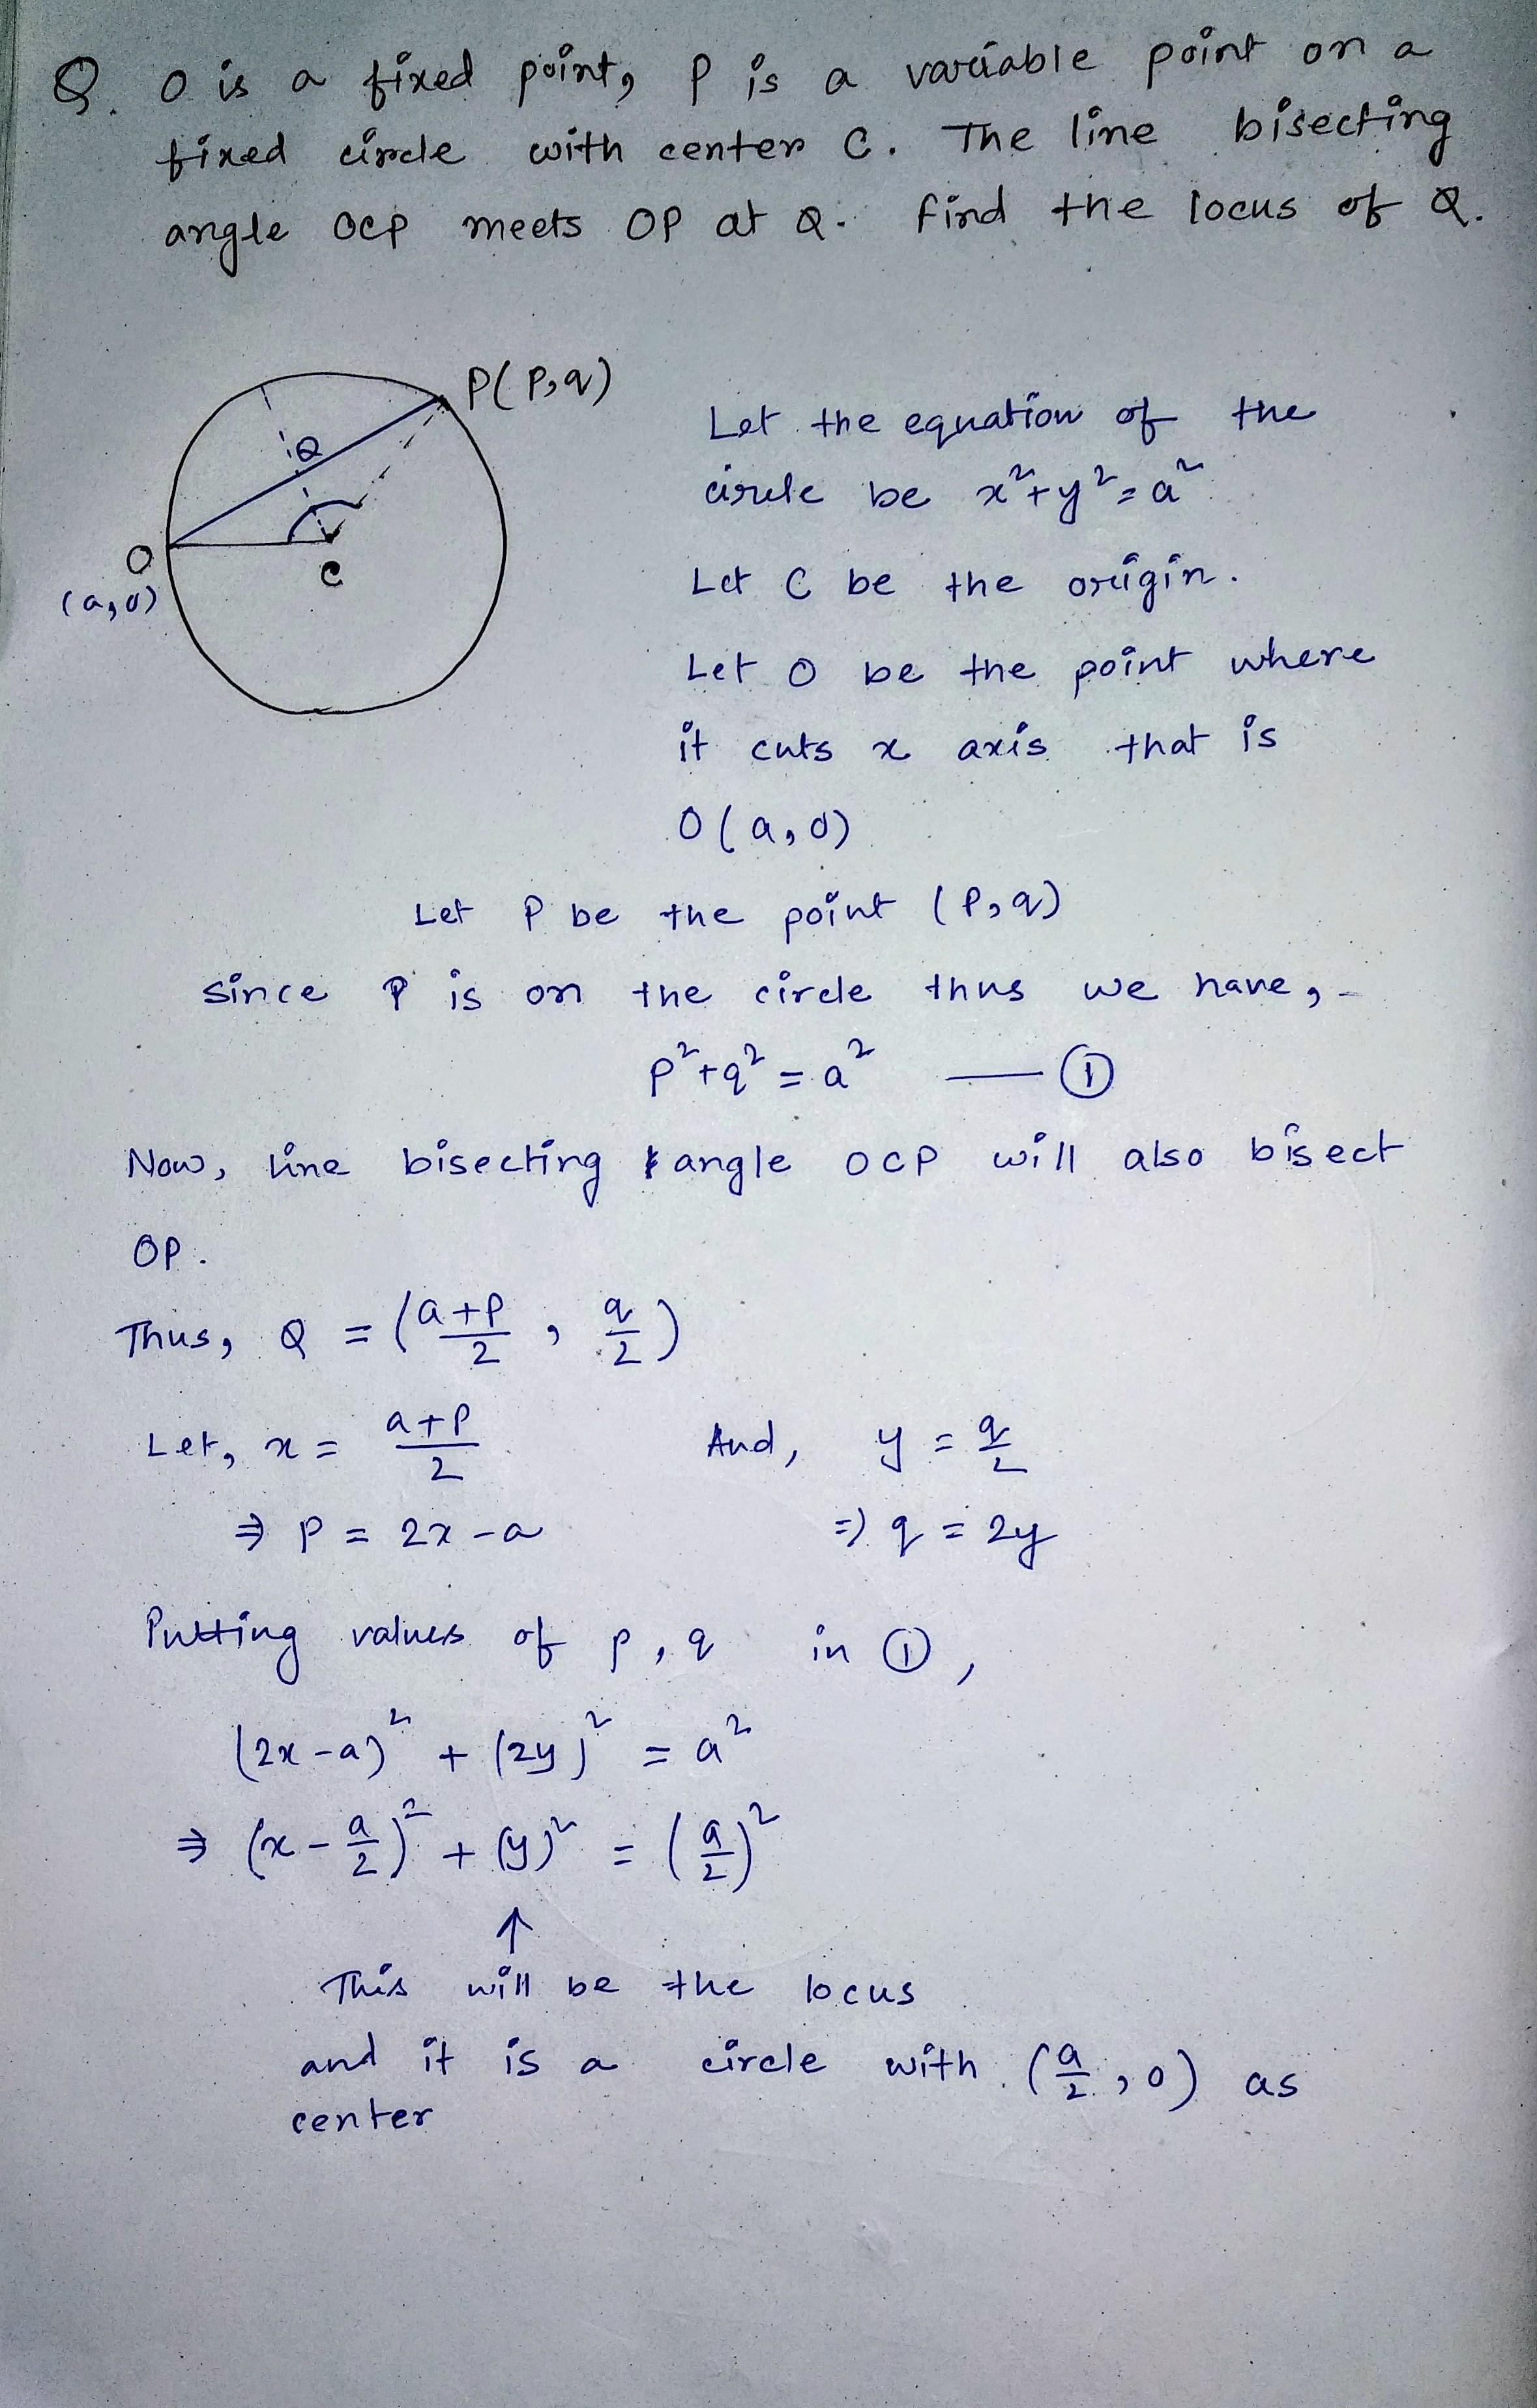 Q. O is a fixed point, P is a variable point on a
fixed circle with center C. The line bisecting
angle OCP meets OP at Q. Find the locus of Q.
P(p,q)
Q
O
(a,0)
C
Let the equation of the
circle be x²+y²=a²
Let C be the origin.
Let O be the point where
it cuts x axis that is
O(a,0)
Let P be the point (p,q)
since P is on the circle thus we have,
p²+q²=a² — ①
Now, line bisecting angle OCP will also bisect
OP.
Thus, Q = (a+p/2, q/2)
Let, x = a+p/2 And, y = q/2
⇒ p = 2x-a ⇒ q = 2y
Putting values of p, q in ①,
(2x-a)² + (2y)² = a²
⇒ (x-a/2)² + (y)² = (a/2)²
↑
This will be the locus
and it is a circle with (a/2, 0) as
center